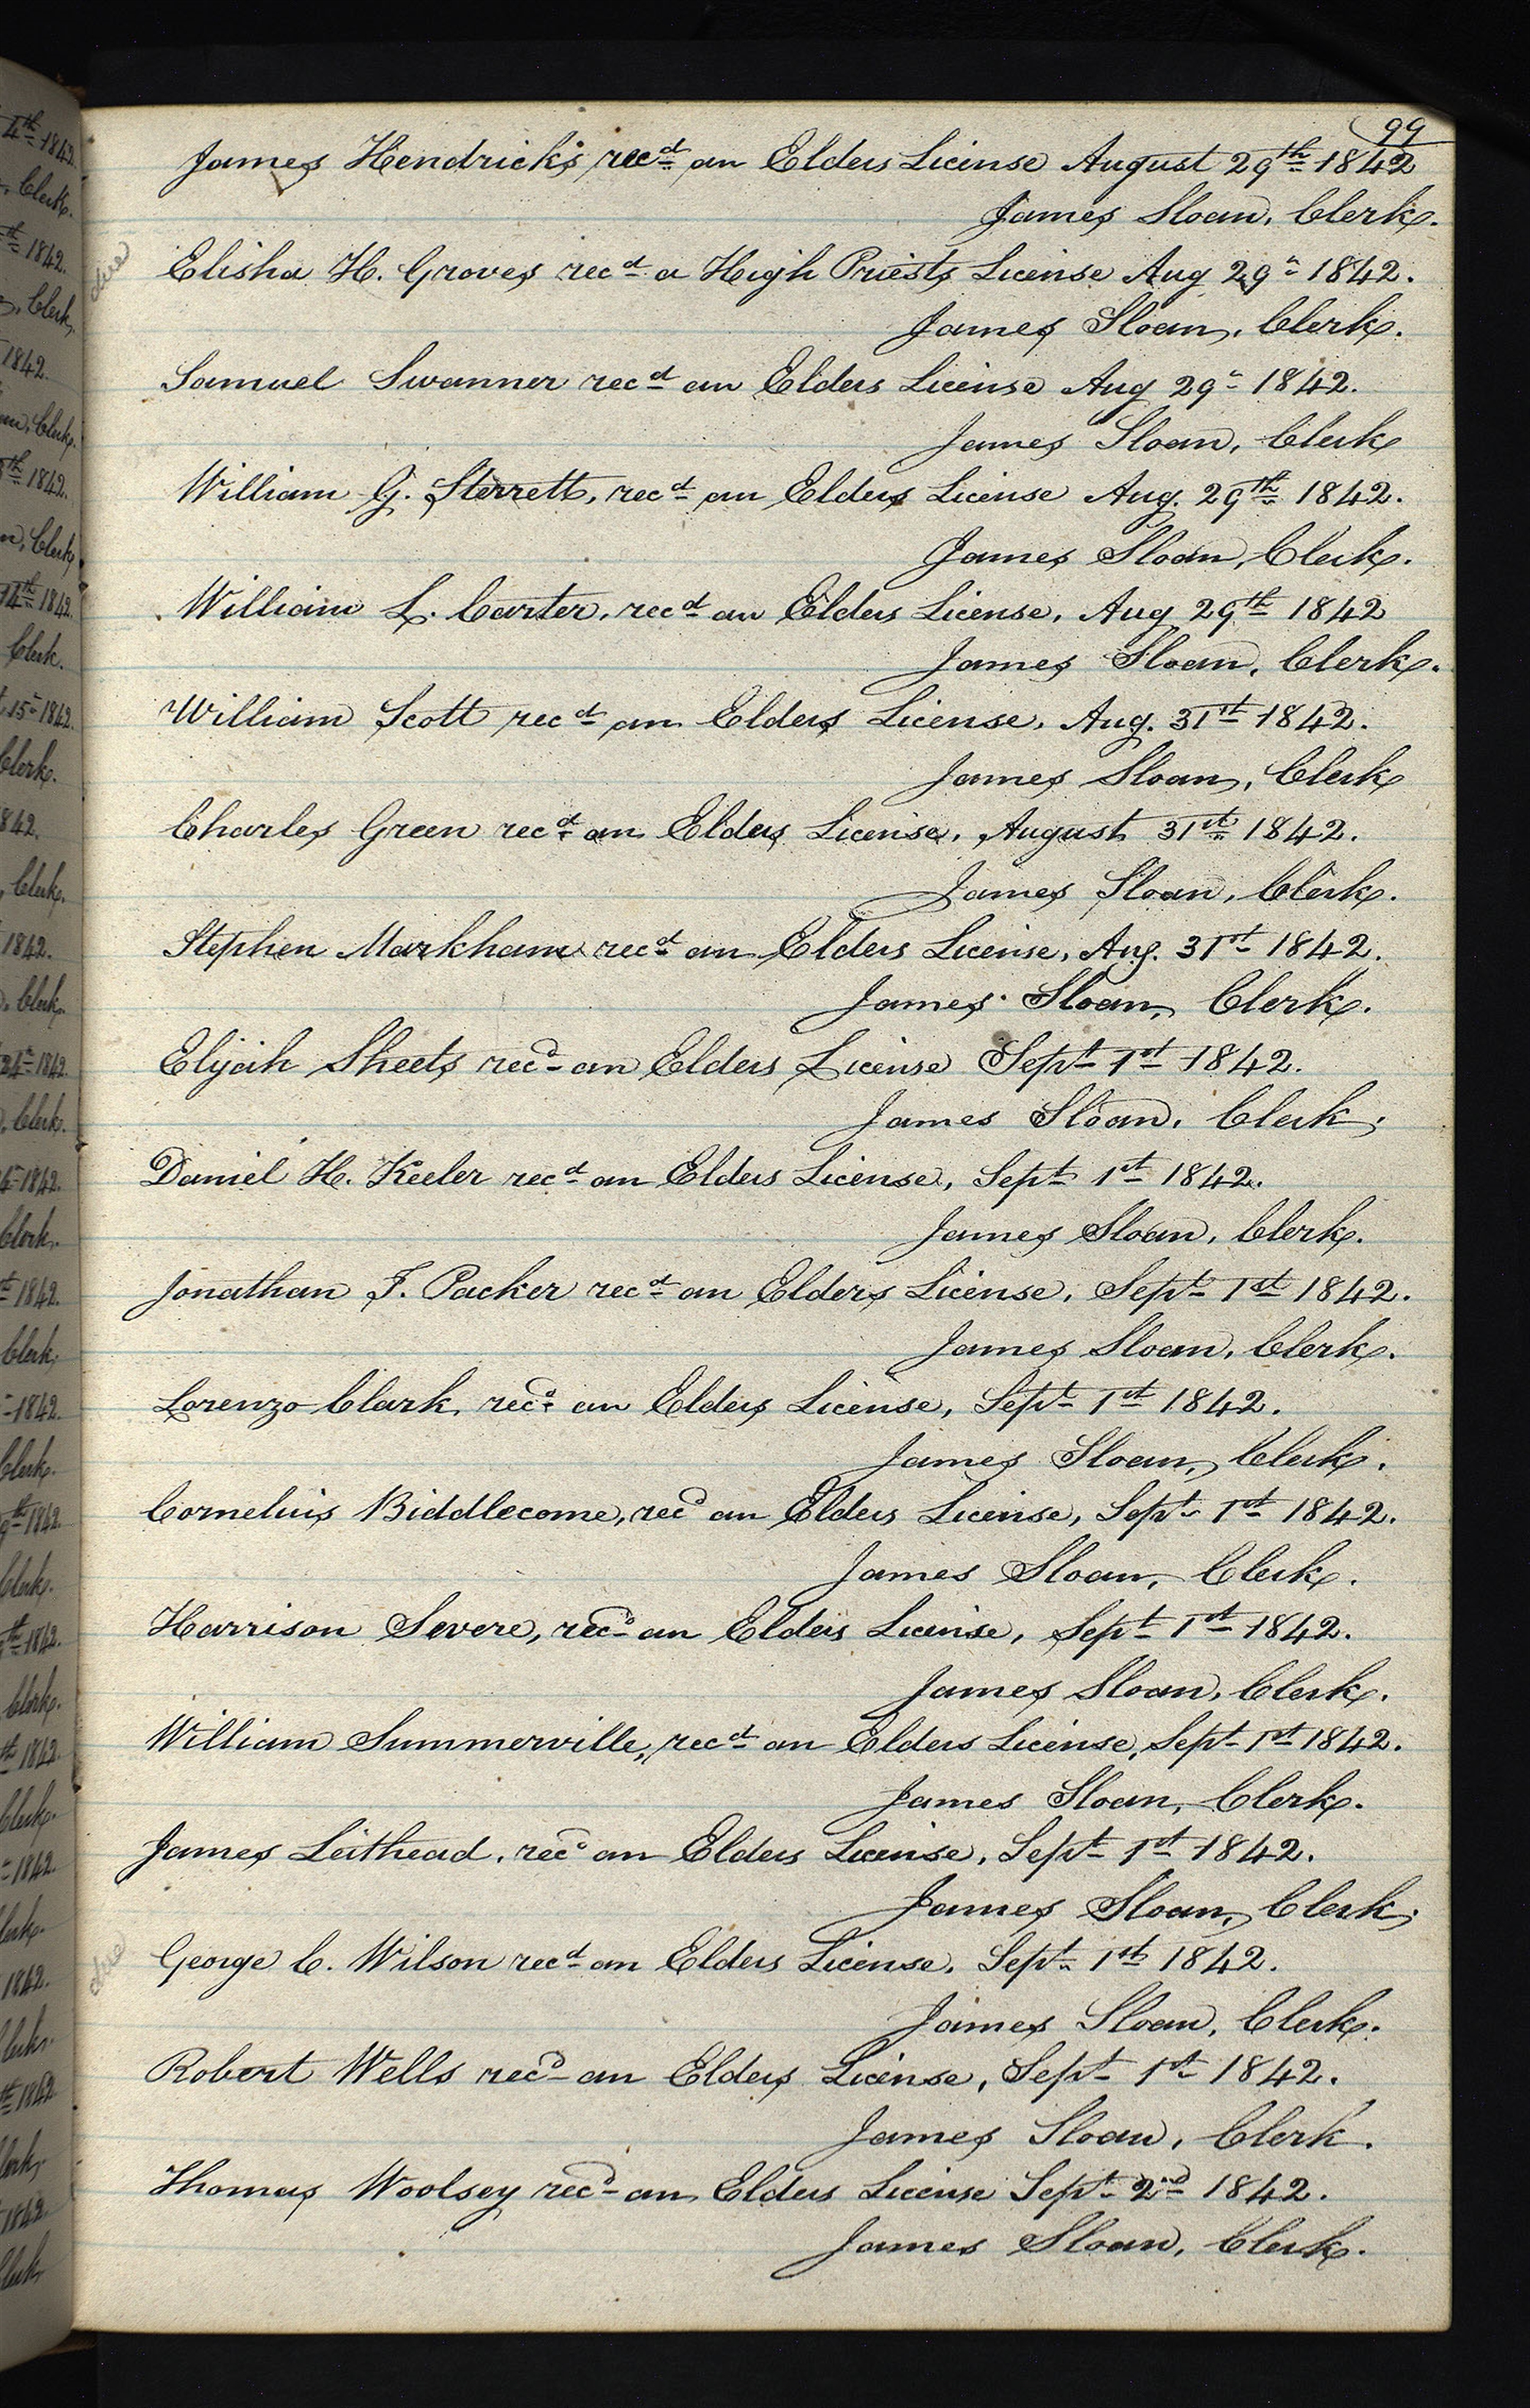 99
James Hendricks recd an Elders License August 29th 1842
James Sloan, Clerk.
due
Elisha H. Groves recd a High Priests License Aug 29th 1842.
James Sloan, Clerk.
Samuel Swanner recd an Elders License Aug 29th 1842.
James Sloan, Clerk
William G. Sterrett, recd an Elders License Aug. 29th 1842.
James Sloan, Clerk.
William L. Carter, recd an Elders License, Aug 29th 1842
James Sloan, Clerk.
William Scott recd an Elders License, Aug. 31st 1842.
James Sloan, Clerk
Charles Green recd an Elders License, August 31st 1842.
James Sloan, Clerk.
Stephen Markham recd an Elders License, Aug. 31st 1842.
James Sloan, Clerk.
Elijah Sheets recd an Elders License Sept 1st 1842.
James Sloan, Clerk,
Daniel H. Keeler recd an Elders License, Sept 1st 1842.
James Sloan, Clerk.
Jonathan T. Packer recd an Elders License, Sept 1st 1842.
James Sloan, Clerk.
Lorenzo Clark, recd an Elders License, Sept 1st 1842.
James Sloan, Clerk.
Cornelius Biddlecome, recd an Elders License, Sept 1st 1842.
James Sloan, Clerk.
Harrison Severe, recd an Elders License, Sept 1st 1842.
James Sloan, Clerk.
William Summerville, recd an Elders License, Sept 1st 1842.
James Sloan, Clerk.
James Leithead, recd an Elders License, Sept 1st 1842.
James Sloan, Clerk,
due
George C. Wilson recd an Elders License, Sept 1st 1842.
James Sloan, Clerk.
Robert Wells recd an Elders License, Sept 1st 1842.
James Sloan, Clerk.
Thomas Woolsey recd an Elders License Sept 2nd 1842.
James Sloan, Clerk.